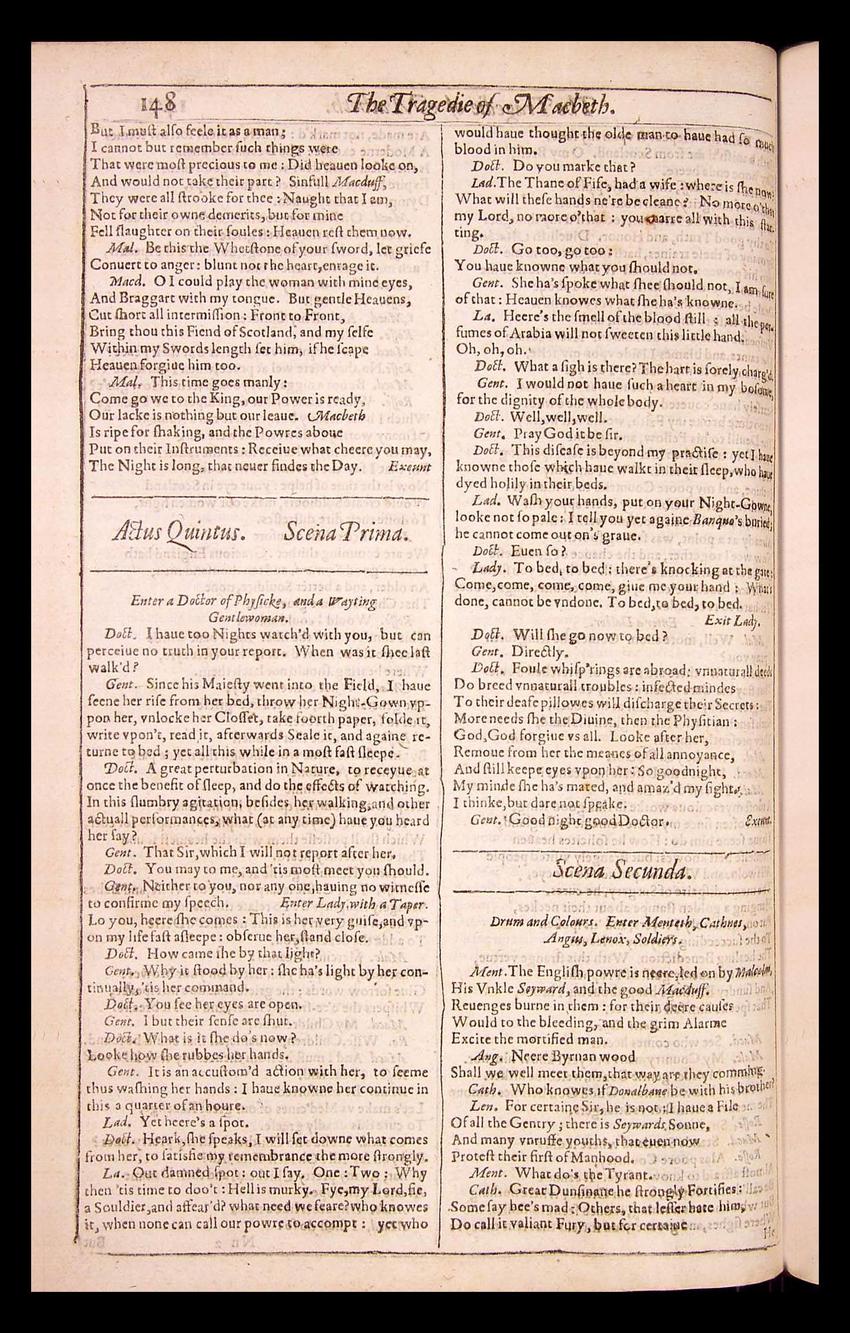 148 The Tragedie of Macbeth.
But I must also feele it as a man;
I cannot but remember such things were
That were most precious to me: Did heauen looke on,
And would not take their part? Sinfull Macduff,
They were all strooke for thee: Naught that I am,
Not for their owne demerits, but for mine
Fell slaughter on their soules: Heauen rest them now.
Mal. Be this the Whetstone of your sword, let griefe
Conuert to anger: blunt not the heart, enrage it.
Macd. O I could play the woman with mine eyes,
And Braggart with my tongue. But gentle Heauens,
Cut short all intermission: Front to Front,
Bring thou this Fiend of Scotland, and my selfe
Within my Swords length set him, if he scape
Heauen forgiue him too.
Mal. This time goes manly:
Come go we to the King, our Power is ready,
Our lacke is nothing but our leaue. Macbeth
Is ripe for shaking, and the Powres aboue
Put on their Instruments: Receiue what cheere you may,
The Night is long, that neuer findes the Day. Exeunt
Actus Quintus. Scena Prima.
Enter a Doctor of Physicke, and a Wayting
Gentlewoman.
Doct. I haue too Nights watch'd with you, but can
perceiue no truth in your report. When was it shee last
walk'd?
Gent. Since his Maiesty went into the Field, I haue
seene her rise from her bed, throw her Night-Gown vp-
pon her, vnlocke her Closset, take foorth paper, folde it,
write vpon't, read it, afterwards Seale it, and againe re-
turne to bed; yet all this while in a most fast sleepe.
Doct. A great perturbation in Nature, to receyue at
once the benefit of sleep, and do the effects of watching.
In this slumbry agitation, besides her walking, and other
actuall performances, what (at any time) haue you heard
her say?
Gent. That Sir, which I will not report after her.
Doct. You may to me, and 'tis most meet you should.
Gent. Neither to you, nor any one, hauing no witnesse
to confirme my speech. Enter Lady, with a Taper.
Lo you, heere she comes: This is her very guise, and vp-
on my life fast asleepe: obserue her, stand close.
Doct. How came she by that light?
Gent. Why it stood by her: she ha's light by her con-
tinually, 'tis her command.
Doct. You see her eyes are open.
Gent. I but their sense are shut.
Doct. What is it she do's now?
Looke how she rubbes her hands.
Gent. It is an accustom'd action with her, to seeme
thus washing her hands: I haue knowne her continue in
this a quarter of an houre.
Lad. Yet heere's a spot.
Doct. Heark, she speaks, I will set downe what comes
from her, to satisfie my remembrance the more strongly.
La. Out damned spot: out I say. One: Two: Why
then 'tis time to doo't: Hell is murky. Fye, my Lord, fie,
a Souldier, and affear'd? what need we feare? who knowes
it, when none can call our powre to accompt: yet who
would haue thought the olde man to haue had so much
blood in him.
Doct. Do you marke that?
Lad. The Thane of Fife, had a wife: where is she now?
What will these hands ne're be cleane? No more o'that
my Lord, no more o'that: you marre all with this star-
ting.
Doct. Go too, go too:
You haue knowne what you should not.
Gent. She ha's spoke what shee should not, I am sure
of that: Heauen knowes what she ha's knowne.
La. Heere's the smell of the blood still: all the per-
fumes of Arabia will not sweeten this little hand.
Oh, oh, oh.
Doct. What a sigh is there? The hart is sorely charg'd.
Gent. I would not haue such a heart in my bosome,
for the dignity of the whole body.
Doct. Well, well, well.
Gent. Pray God it be sir.
Doct. This disease is beyond my practise: yet I haue
knowne those which haue walkt in their sleep, who haue
dyed holily in their beds.
Lad. Wash your hands, put on your Night-Gowne,
looke not so pale: I tell you yet againe Banquo's buried;
he cannot come out on's graue.
Doct. Euen so?
Lady. To bed, to bed: there's knocking at the gate:
Come, come, come, come, giue me your hand: What's
done, cannot be vndone. To bed, to bed, to bed.
Exit Lady.
Doct. Will she go now to bed?
Gent. Directly.
Doct. Foule whisp'rings are abroad: vnnaturall deeds
Do breed vnnaturall troubles: infected mindes
To their deafe pillowes will discharge their Secrets:
More needs she the Diuine, then the Physitian:
God, God forgiue vs all. Looke after her,
Remoue from her the meanes of all annoyance,
And still keepe eyes vpon her: So goodnight,
My minde she ha's mated, and amaz'd my sight.
I thinke, but dare not speake.
Gent. Good night good Doctor. Exeunt.
Scena Secunda.
Drum and Colours. Enter Menteth, Cathnes,
Angus, Lenox, Soldiers.
Ment. The English powre is neere, led on by Malcolm,
His Vnkle Seyward, and the good Macduff.
Reuenges burne in them: for their deere causes
Would to the bleeding, and the grim Alarme
Excite the mortified man.
Ang. Neere Byrnan wood
Shall we well meet them, that way are they comming.
Cath. Who knowes if Donalbane be with his brother?
Len. For certaine Sir, he is not: I haue a File
Of all the Gentry; there is Seywards Sonne,
And many vnruffe youths, that euen now
Protest their first of Manhood.
Ment. What do's the Tyrant.
Cath. Great Dunsinane he strongly Fortifies:
Some say hee's mad: Others, that lesser hate him,
Do call it valiant Fury, but for certaine
He